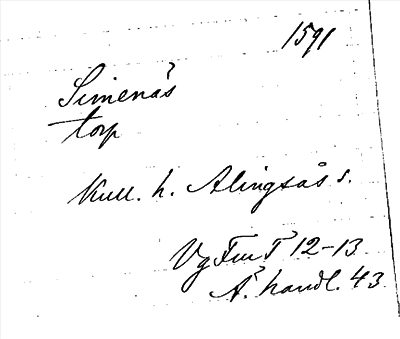 1591
Simenås
torp
Kull. h. Alingsås s.
Vg Fm T 12-13
Ä. handl. 43